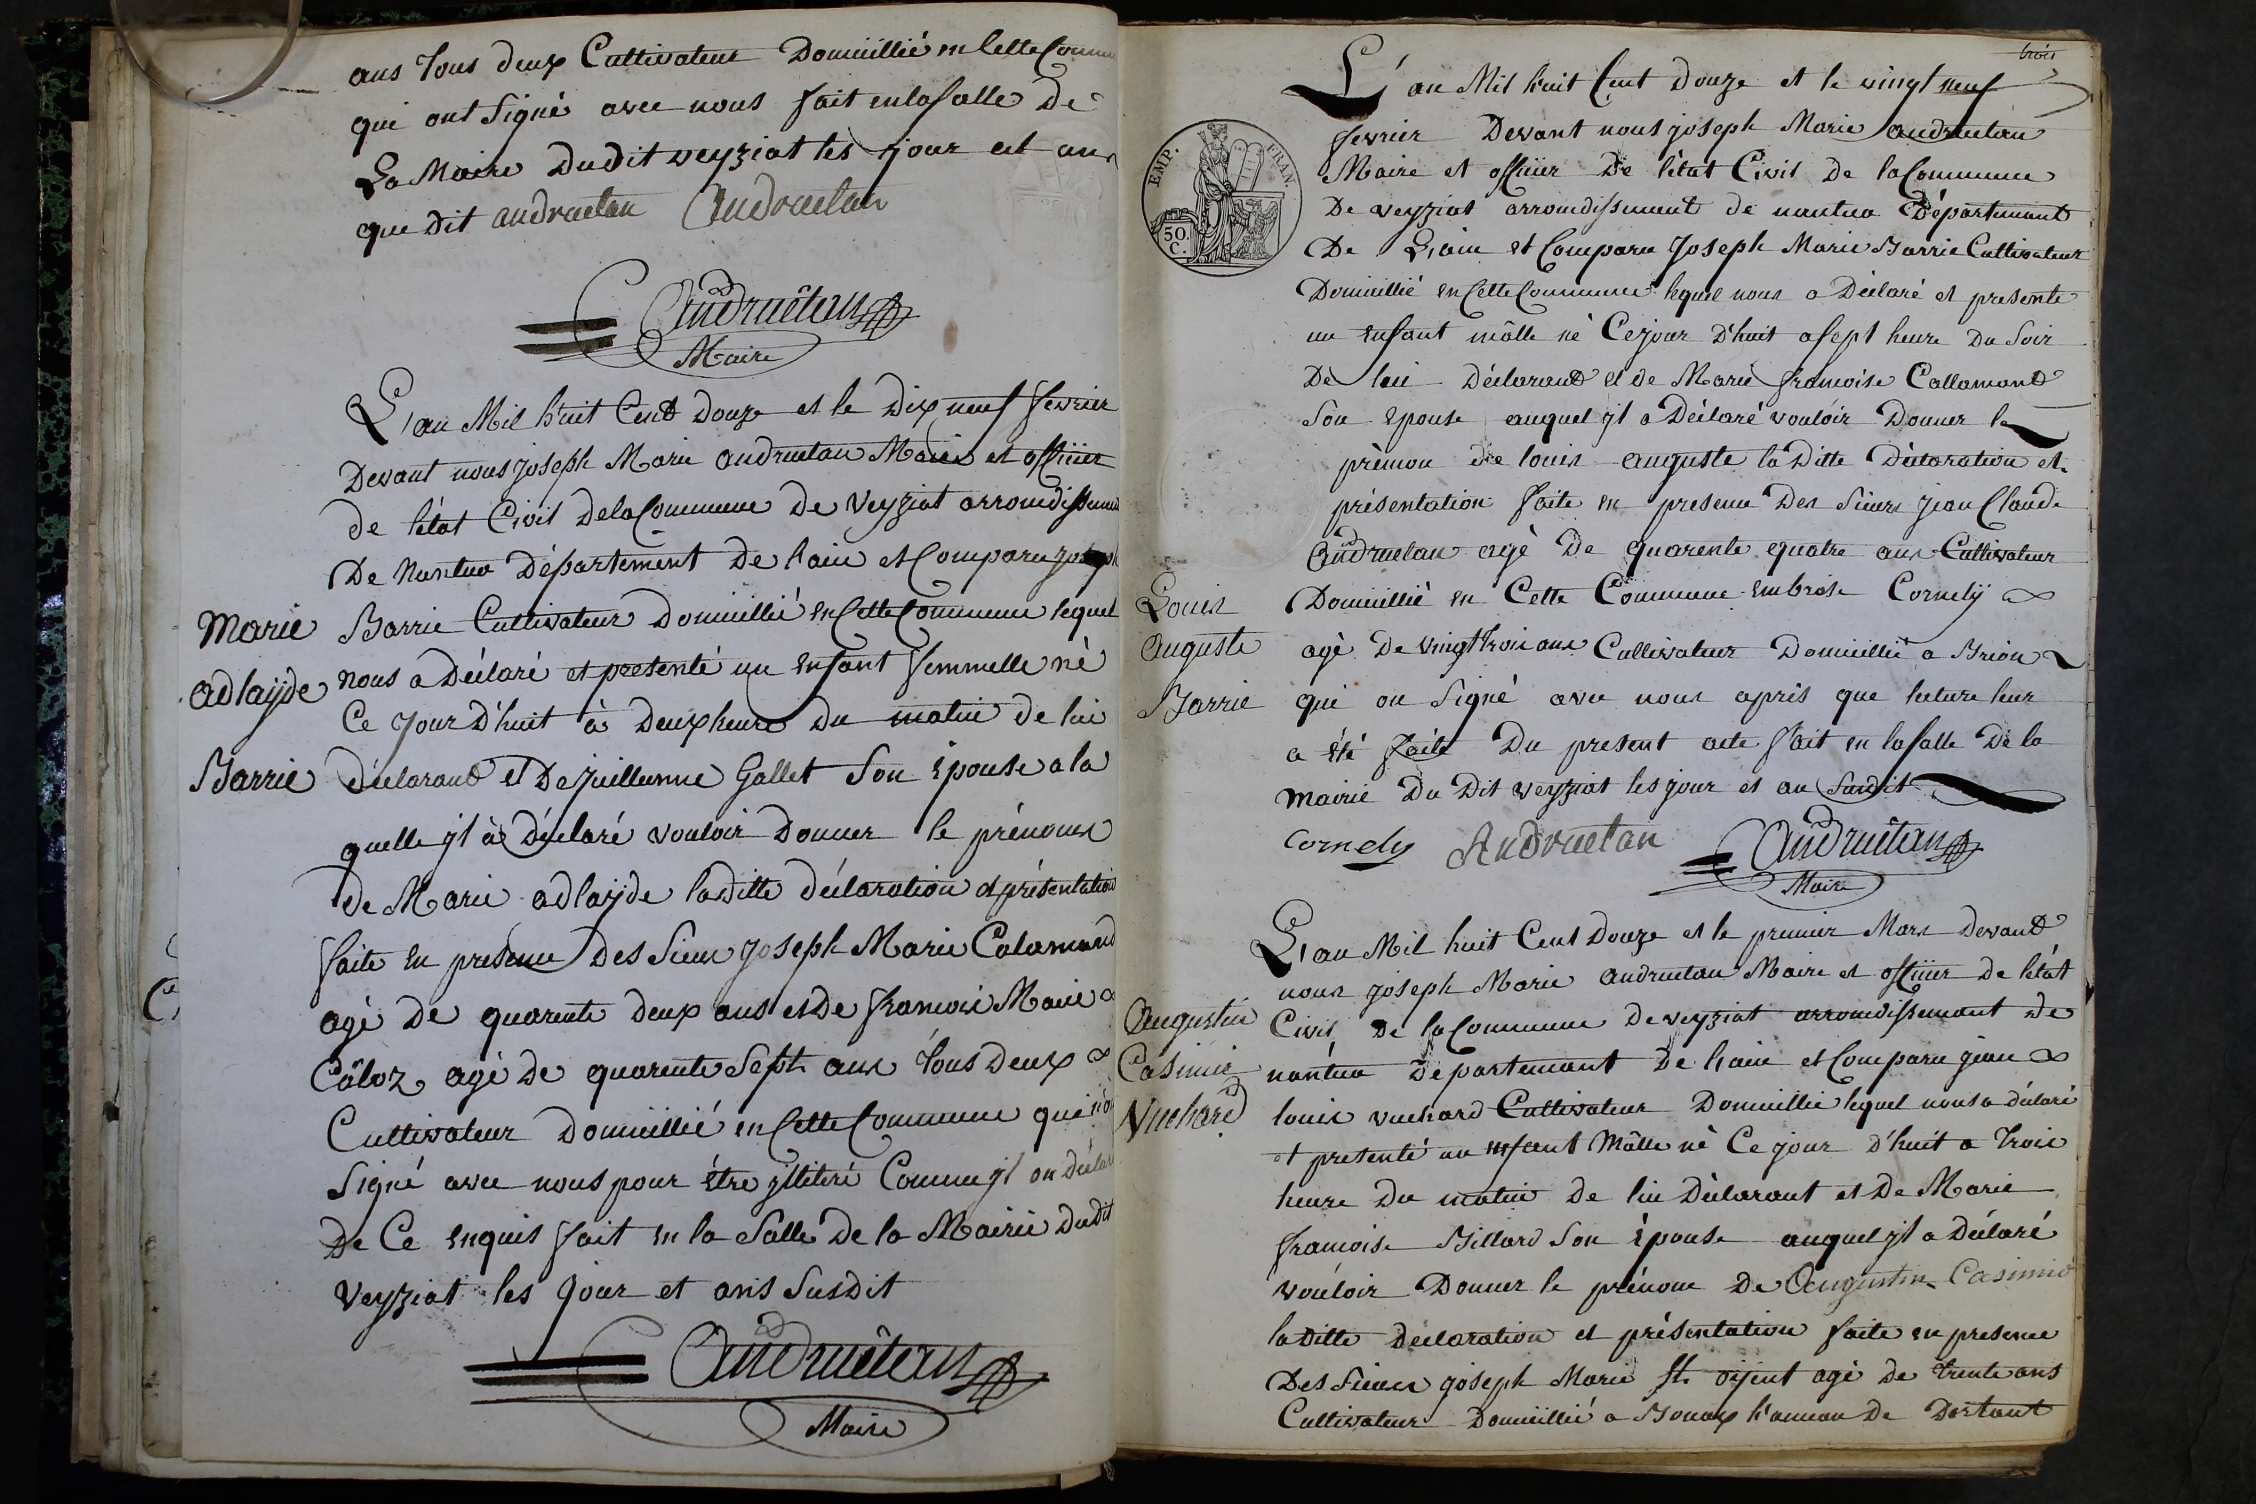 ans tous deux Cultivateur Domiiillié en Cette Commu
qui ont Signé avec nous fait en la Salle De
La Mairie Dudit veyziat les jour et an
que Dit andruetan Andruetan
Andruêtan
Maire
L'an Mil huit Cent Douze et le Dix neuf fevrier
Devant nous joseph Marie andruetan Maire et offiiier
de l'état Civil de la Commune De Veyziat arrondissem
De Nantua Département De l'ain et Comparu joseph
Marie
adlaÿde
Barrie
Barrie Cultivateur Domiiillié en Cette Commune lequel
nous a Déclaré et presenté un Enfant femmelle né
Ce jour D'huit à Deux heure du matin de lui
déclarant et De juillienne Gallet Son Epouse a la
quelle jl à Déclaré vouloir Donner le prénoms
de Marie adlaÿde la ditte déclaration et présentation
faite en presence Des Sieur joseph Marie Calamand
agé De quarente deux ans et de francois Marie
Câloz agé de quarente Sept ans tous Deux
Cultivateur Domiiillié en Cette Commune qui non
Signé avec nous pour être jlliteré Comme jl on Déclar
De Ce enquis fait en la Salle de la Mairie Dudit
Veyziat les jour et ans Susdit
Andruêtan
Maire
trois
L'an Mil huit Cent Douze et le vingt neuf
fevrier Devant nous joseph Marie andruetan
Maire et offiiier De l'état Civil De la Commune
De veyziat arrondissement de nantua Département
De L'ain et Comparu Joseph Marie Barrie Cultivateur
Domiiillié en Cette Commune lequel nous a Déclaré et presente
un enfant mâlle né Ce jour D'huit a sept heure Du Soir
De lui Déclarant et de Marie francoise Callamand
Son Epouse auquel jl a Déclaré vouloir Donner le
prénom de louis auguste la Ditte Déclaration et
présentation faite en presence Des Sieurs jean Claude
Andruetan agé De quarente quatre ans Cultivateur
Domiiillié en Cette Commune embrose Cornely
agé De vingt trois ans Cultivateur Domiiillié a Brion
qui on Signé avec nous après que lecture leur
a été faite Du present acte fait en la salle De la
mairie Du Dit veyziat les jour et an Susdit
Louis
Auguste
Barrie
EMP. FRAN.
50.
C.
Cornely Andruetan Andruêtan
Maire
L'an Mil huit Cent Douze et le premier Mars Devant
nous joseph Marie andruetan Maire et offiiier De l'état
Civil De la Commune De veyziat arrondissement De
nantua Departement De l'ain et Comparu jean
louis vuchard Cultivateur Domiiillié lequel nous a déclaré
et presenté un enfant Mâlle né Ce jour d'huit a trois
heure Du matin De lui Déclarant et De Marie
francoise Billard Son Epouse auquel jl a Déclaré
vouloir Donner le prénom De Augustin Casimir
la Ditte Declaration et présentation faite en presence
Des Sieurs joseph Marie St. oÿent agé de trente ans
Cultivateur Domiiillié a Bouax hameau De Dortant
Augustin
Casimir
Vuchard